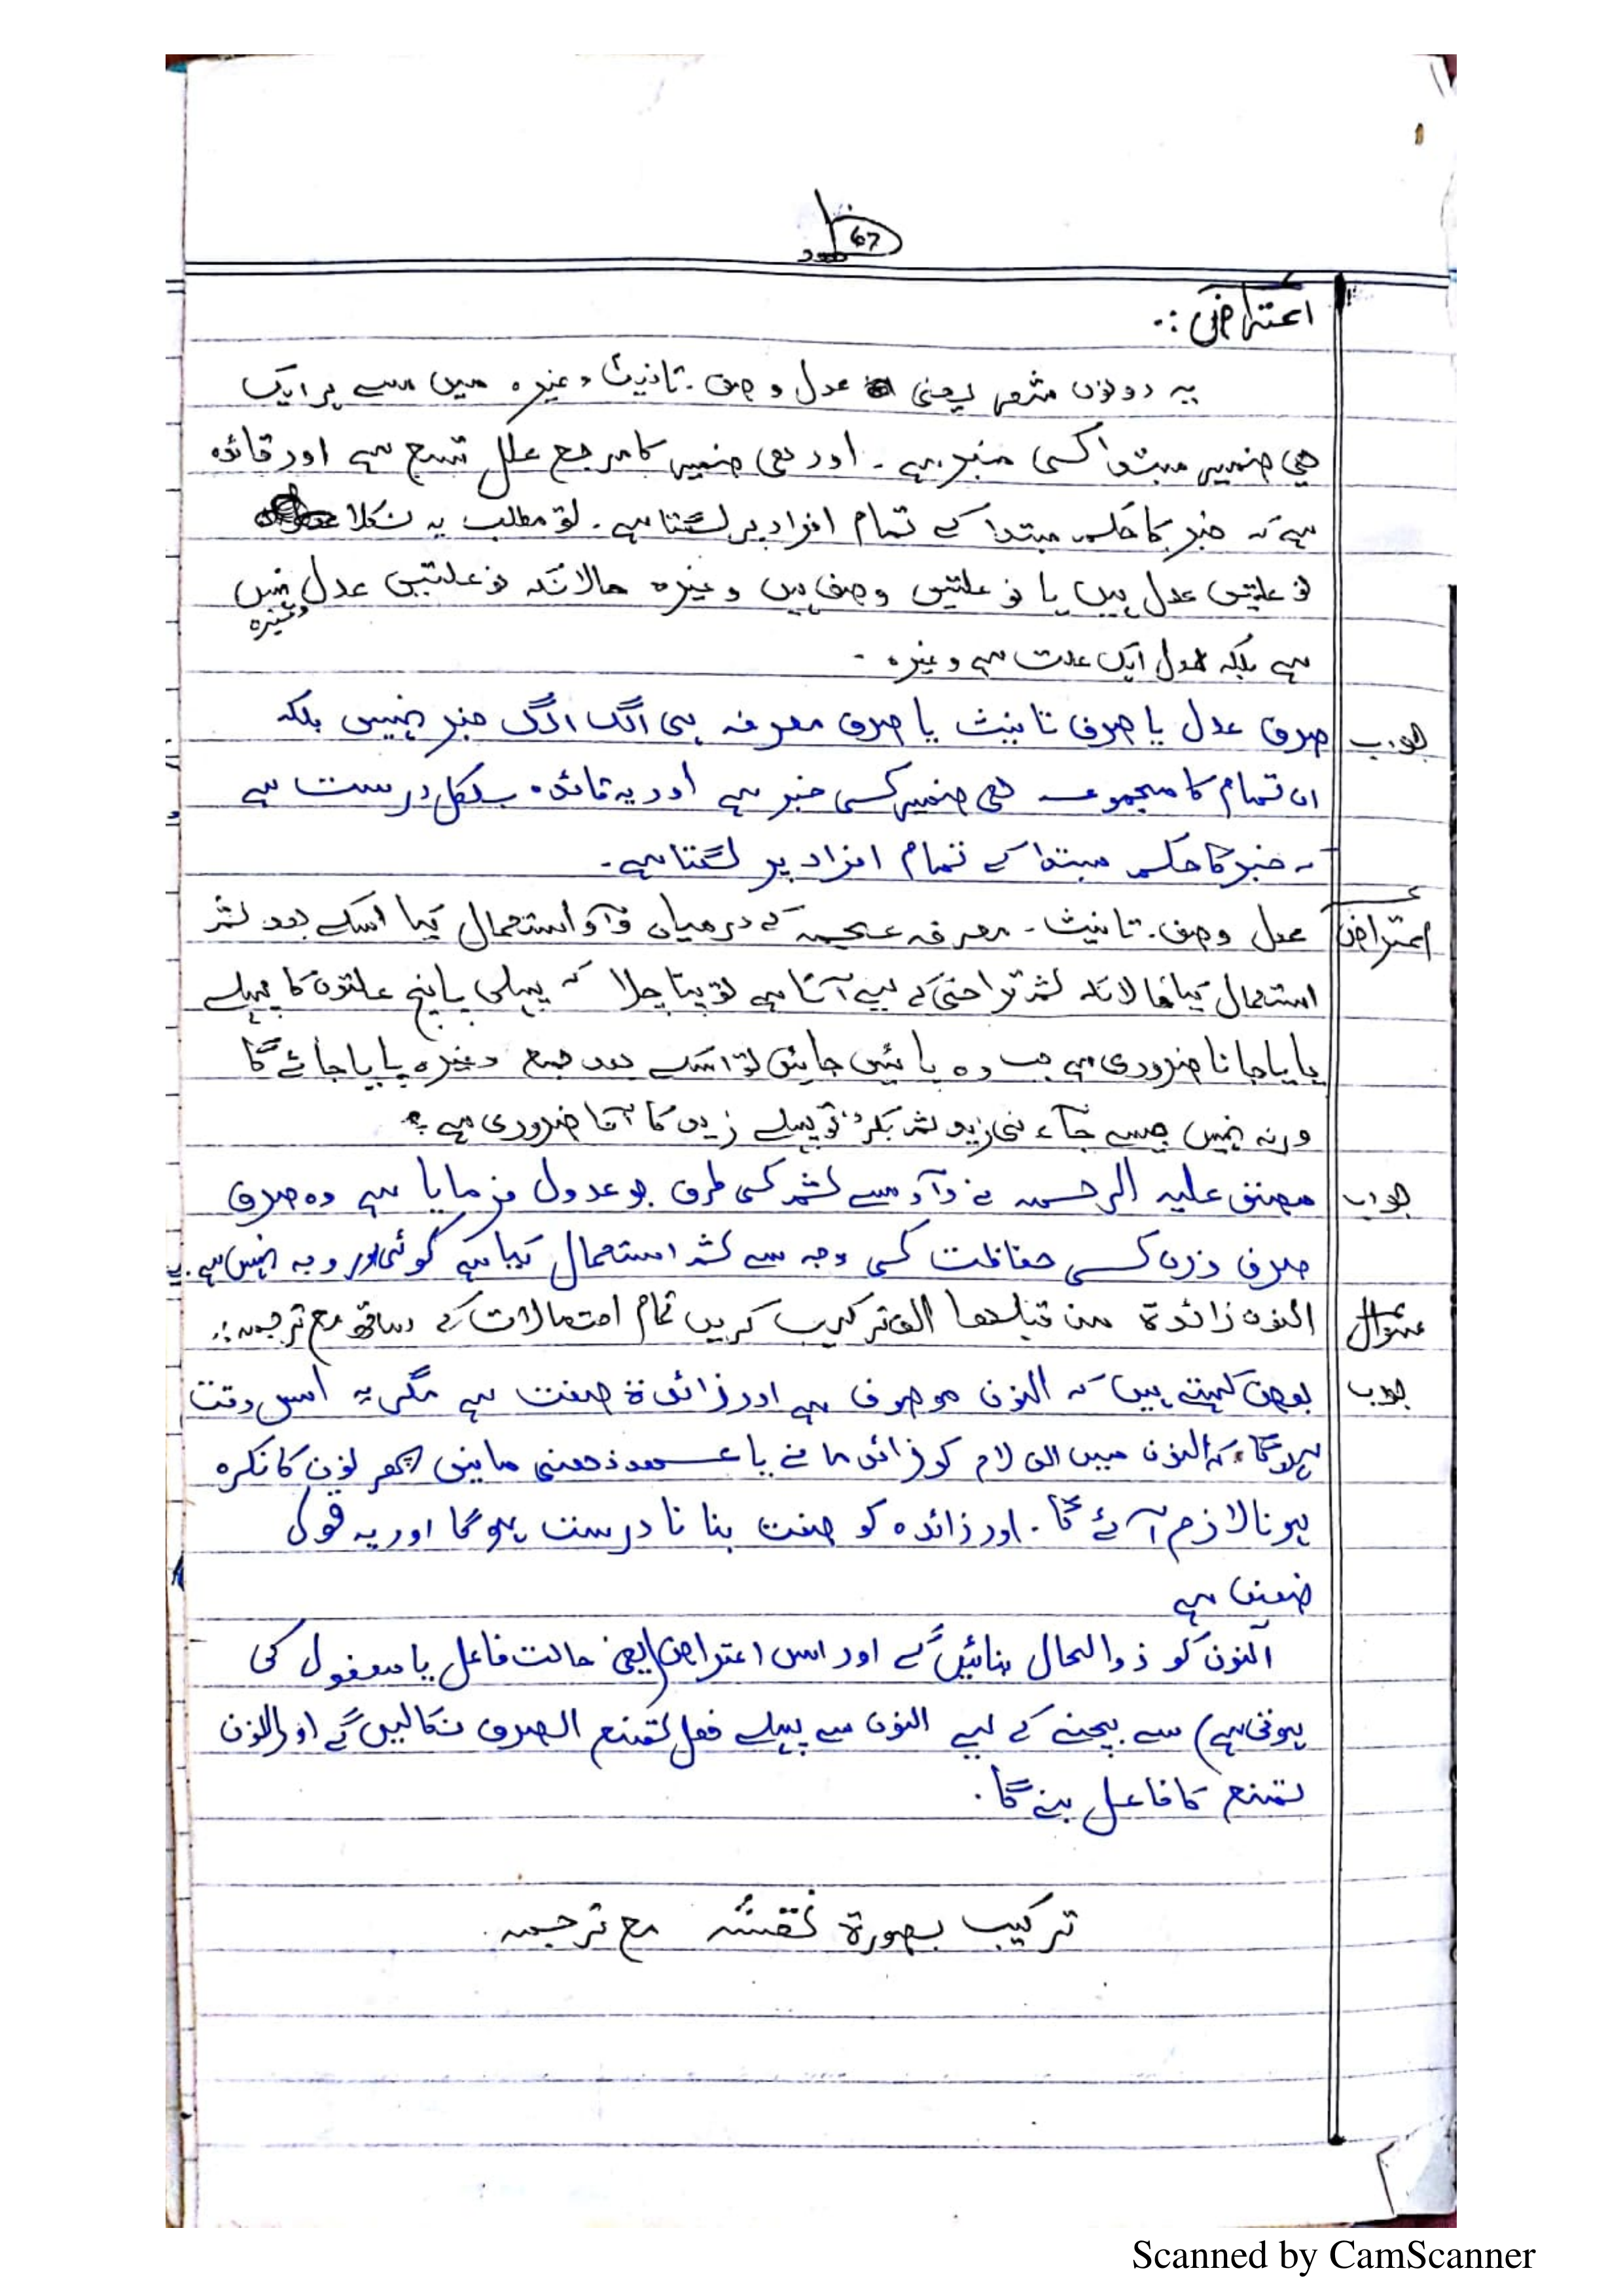 67
اعتراض :۔
یہ دونوں شعر یعنی عدل وصف۔ تانیث وغیرہ میں سے ہر ایک
ھی ضمیر مبتدا کسی خبر ہے۔ اور ھی ضمیر کا مرجع علل تسع ہے اور قائدہ
ہے کہ خبر کا حکم مبتدا کے تمام افراد پر لگتا ہے۔ تو مطلب یہ نکلا
نو علتیں عدل ہیں یا نو علتیں وصف ہیں وغیرہ حالانکہ نو علتیں عدل نہیں
وغیرہ
ہے بلکہ عدل ایک علت ہے وغیرہ ۔
جواب صرف عدل یا صرف تانیث یا صرف معرفہ ہی الگ الگ خبر نہیں بلکہ
ان تمام کا مجموعہ ھی ضمیر کسی خبر ہے اور یہ قائدہ بلکل درست ہے
کہ خبر کا حکم مبتدا کے تمام افراد پر لگتا ہے۔
اعتراض عدل وصف۔ تانیث۔ معرفہ عجمہ کے درمیان واؤ استعمال کیا اسکے بعد ثمر
استعمال کیا حالانکہ ثمر تراخی کے لیے آتا ہے تو پتا چلا کہ پہلی پانچ علتوں کا پہلے
پایا جانا ضروری ہے جب وہ پائیں جائیں تو اسکے بعد جمع وغیرہ پایا جائے گا
ورنہ نہیں جیسے جآء نی زید ثمر بکر تو پہلے زید کا آنا ضروری ہے ؟
جواب مصنف علیہ الرحمہ نے واؤ سے ثمر کی طرف جو عدول فرمایا ہے وہ صرف
صرف وزن کسی حفاظت کی وجہ سے ثمر استعمال کیا ہے کوئی اور وجہ نہیں ہے۔
سوال النون زائدۃ من قبلھا الف ترکیب کریں تمام احتمالات کے ساتھ مع ترجمہ :۔
جواب بعض کہتے ہیں کہ النون موصوف ہے اور زائدۃ صفت ہے مگر یہ اس وقت
ہوگا کہ النون میں ال لام کو زائد مانے یا عہد ذھنی مانیں پھر نون کا نکرہ
ہونا لازم آئے گا۔ اور زائدہ کو صفت بنانا درست ہوگا اور یہ قول
ضعیف ہے
النون کو ذوالحال بنائیں گے اور اس اعتراض (یعنی حالت فاعل یا مفعول کی
ہوتی ہے) سے بچنے کے لیے النون سے پہلے فعل تمنع الصرف نکالیں گے اور النون
تمنع کا فاعل بنے گا۔
ترکیب بصورۃ نقشہ مع ترجمہ
Scanned by CamScanner